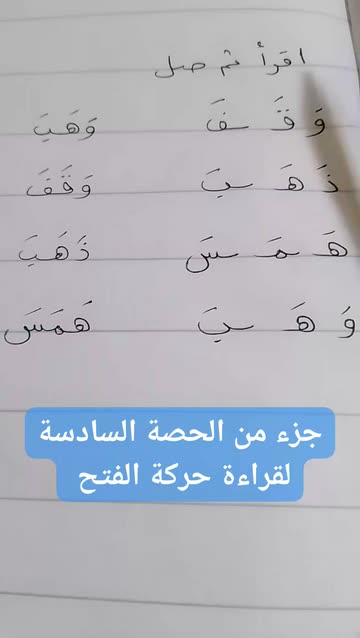 اقرأ ثم صل
وَ قَـ ـفَ وَهَبَ
ذَ هَـ ـبَ وَقَفَ
هَـ ـمَـ ـسَ ذَهَبَ
وَ هَـ ـبَ هَمَسَ
جزء من الحصة السادسة
لقراءة حركة الفتح